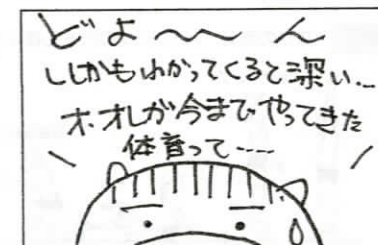 どよ〜〜ん
ししかもわかってくると深い…
オ、オレが今までやってきた
体育って……